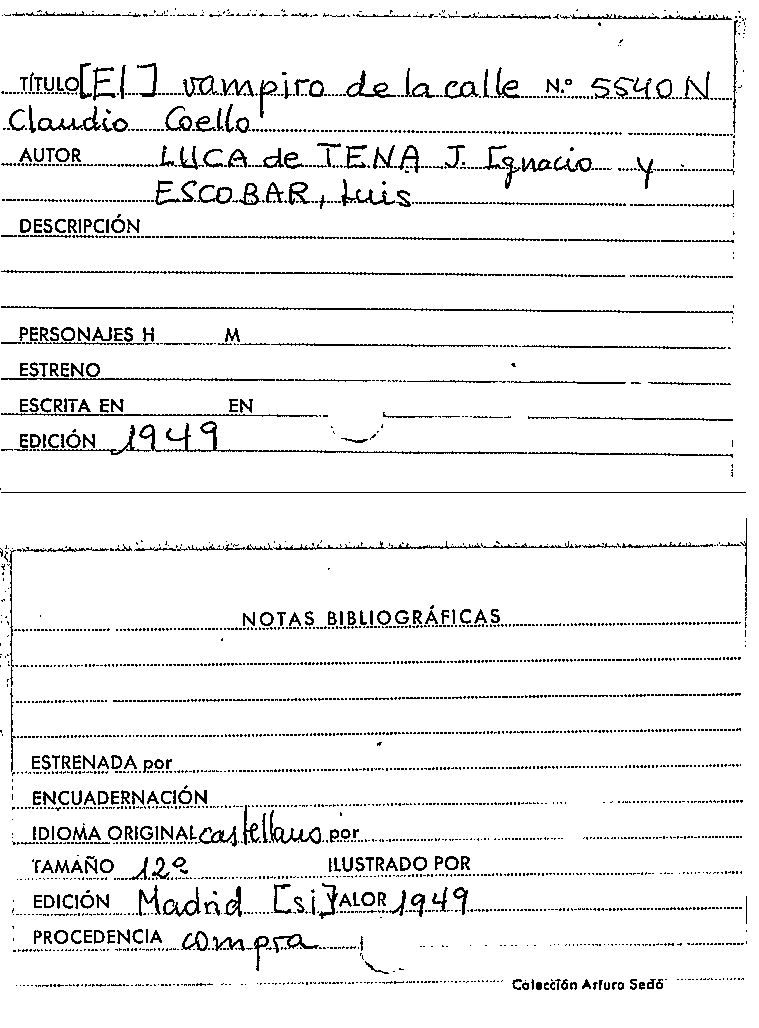 TÍTULO [El] vampiro de la calle N.º 5540 N
Claudio Coello
AUTOR LUCA de TENA J. Ignacio y
ESCOBAR, Luis
DESCRIPCIÓN
PERSONAJES H M
ESTRENO
ESCRITA EN EN
EDICIÓN 1949
NOTAS BIBLIOGRÁFICAS
ESTRENADA por
ENCUADERNACIÓN
IDIOMA ORIGINAL castellano por
TAMAÑO 12º ILUSTRADO POR
EDICIÓN Madrid [si] VALOR 1949
PROCEDENCIA compra
Colección Arturo Sedó